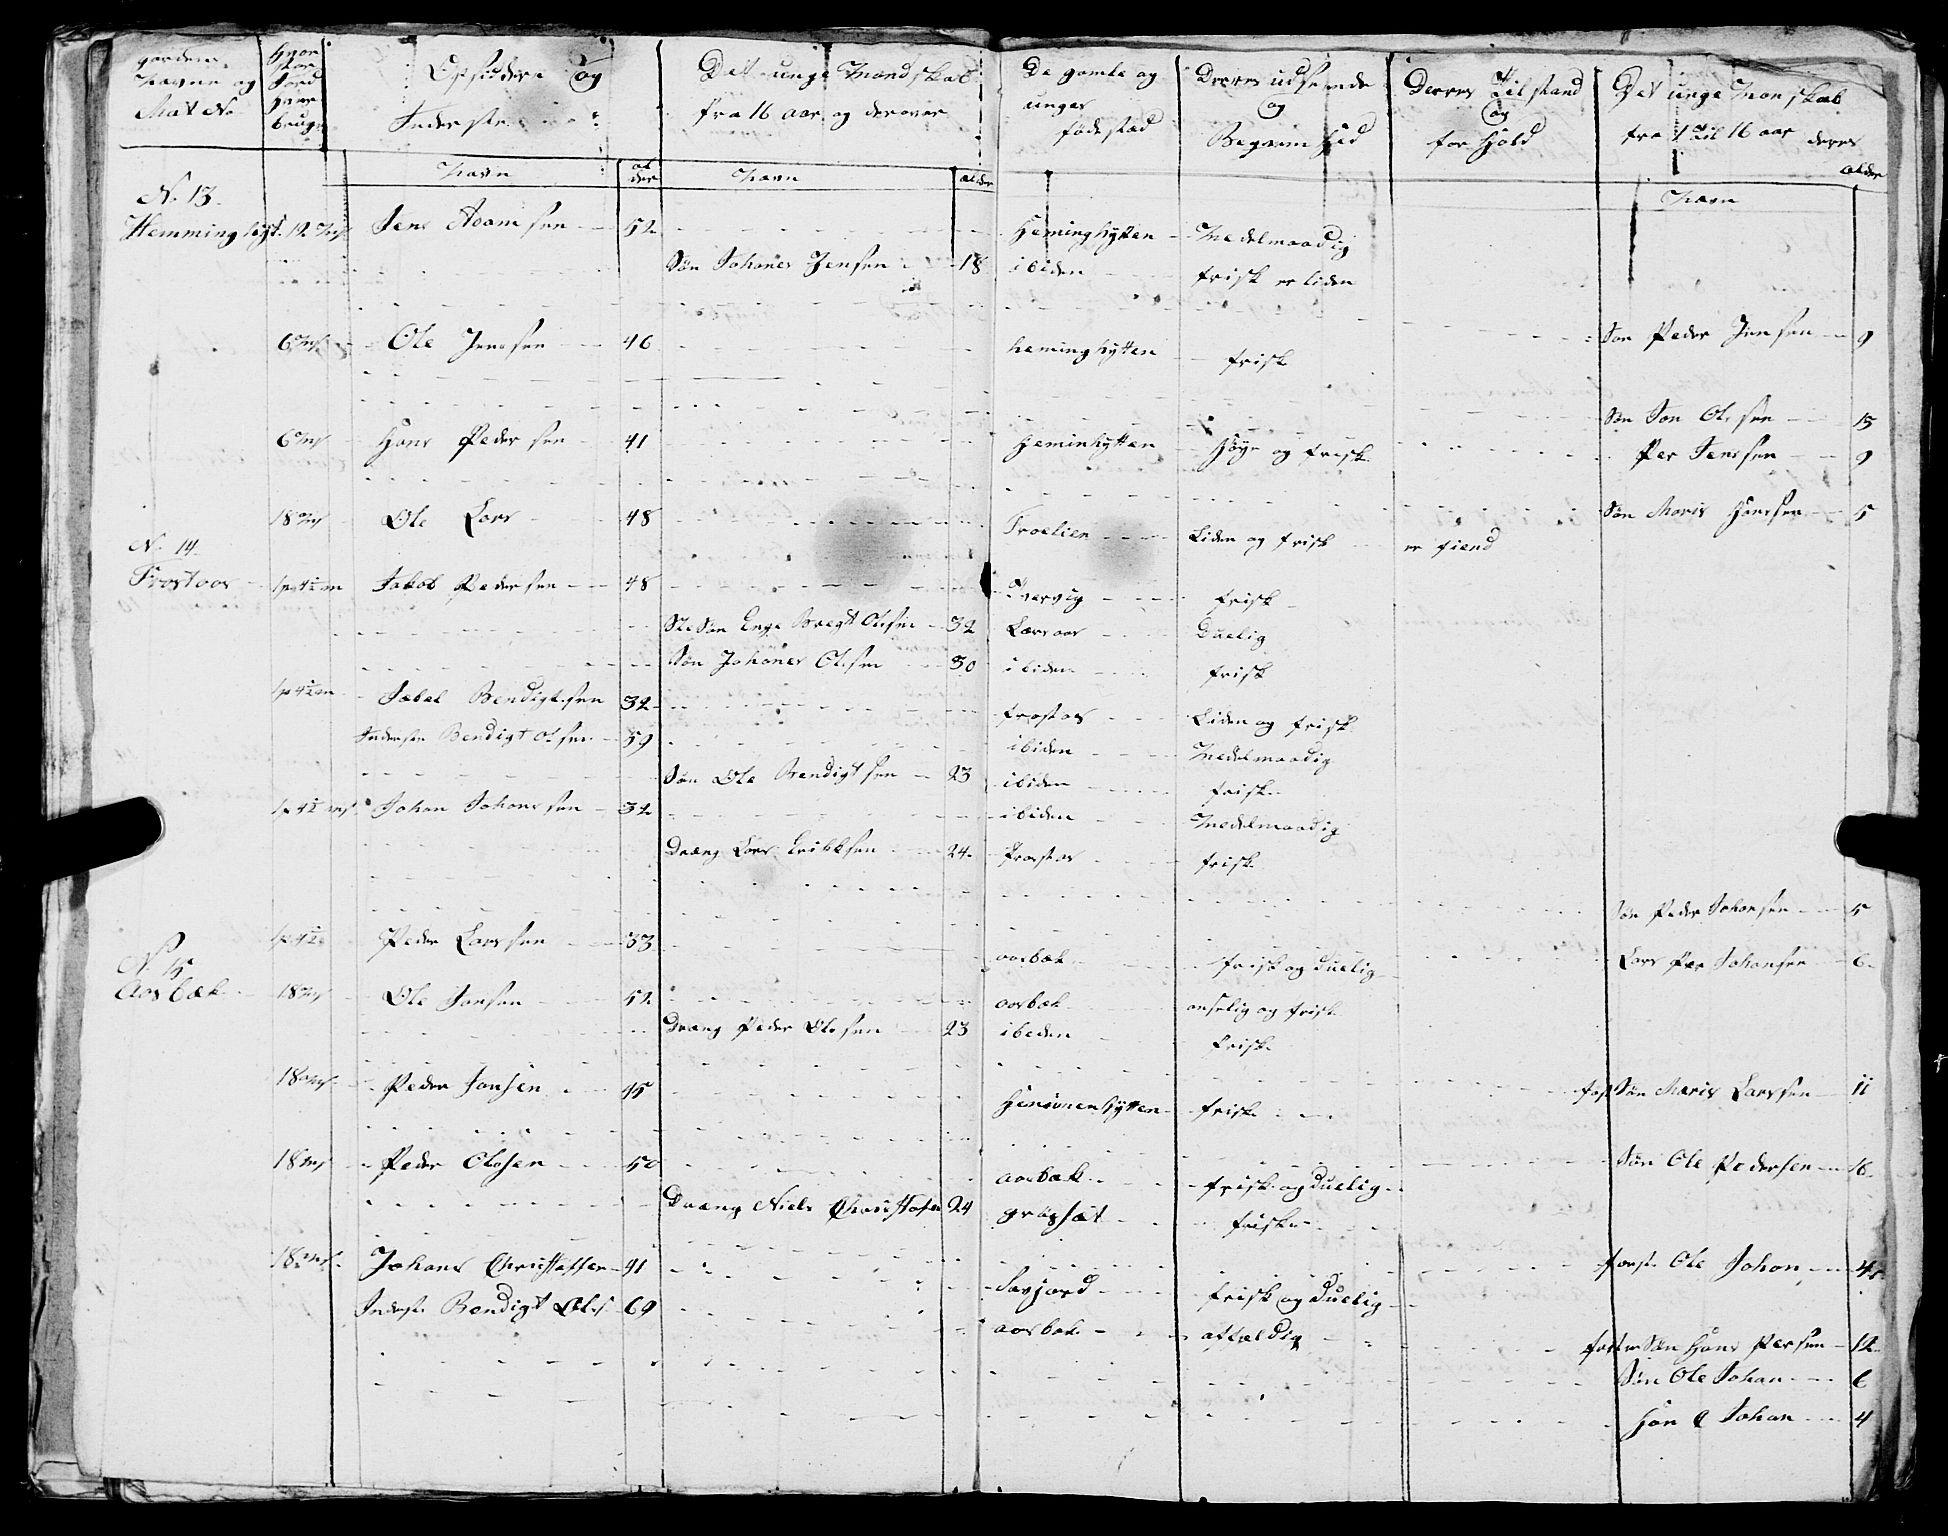 gordens Navne og Mat No
Hvor stor Jord hver bruger
Opsidere og Inderster
Det unge Mandskab fra 16 aar og derover
De gamle og unges fødestad
Deres udseende og Begvemhed
Deres Tilstand og forhold
Det unge Manskab fra 1 til 16 aar deres alder
Navn alder Navn alder Navn
No 13
Hemminghyt 12 Mk Jens Adamsen 52 Heminghytten Medelmaadig
Søn Johanes Jensen 18 ibiden frisk er liden
6 Mk Ole Jenssen 46 heminghytten frisk Søn Peder Jensen 9
6 Mk Hans Pedersen 41 Heminhytten Høye og frisk Søn Jon Olesen 15
Per Jenssen 9
18 Mk Ole Lars 48 Troelien Liden og frisk er fiend Søn Moris Hanssen 5
No 14
Frostaas 1 p 4½ m Jakob Pedersen 48 frisk
StedSøn Enge Bregt Olsen 32 Larsaas Duelig
Søn Johanes Olsen 30 ibiden frisk
1 p 4½ m Jabel Bendigtsen 32 frostaas Liden og frisk
Inderste Bendigt Olsen 59 ibiden Medelmaadig
Søn Ole Bendigtsen 23 ibiden frisk
1 p 4½ m Johan Johansen 32 ibiden Medelmaadig
Dræng Lars Erikksen 24 frostas frisk
Søn Peder Johansen 5
1 p 4½ Peder Larssen 33 aasbæk frisk og duelig Lars Per Johansen 6
No 15
Aasbæk 18 Mk Ole Jonsen 52 aasbæk anselig og frisk
Dræng Peder Olesen 23 ibeden frisk
18 Mk Peder Jonsen 45 Heminenhytten frisk fosSøn Maris Larssen 11
18 Mk Peder Olesen 50 aasbæk frisk og duelig Søn Ole Pedersen 16
Dræng Niels Christofer 24 grøssæt frisk
18 Mk Johans Christoffer 41 Saxjord frisk og duelig forst Ole Johan 4
Inderste Bendigt Ols 69 aasbæk affældig
foster Søn Hans Persen 12
Søn Ole Johan 6
Han Johan 4